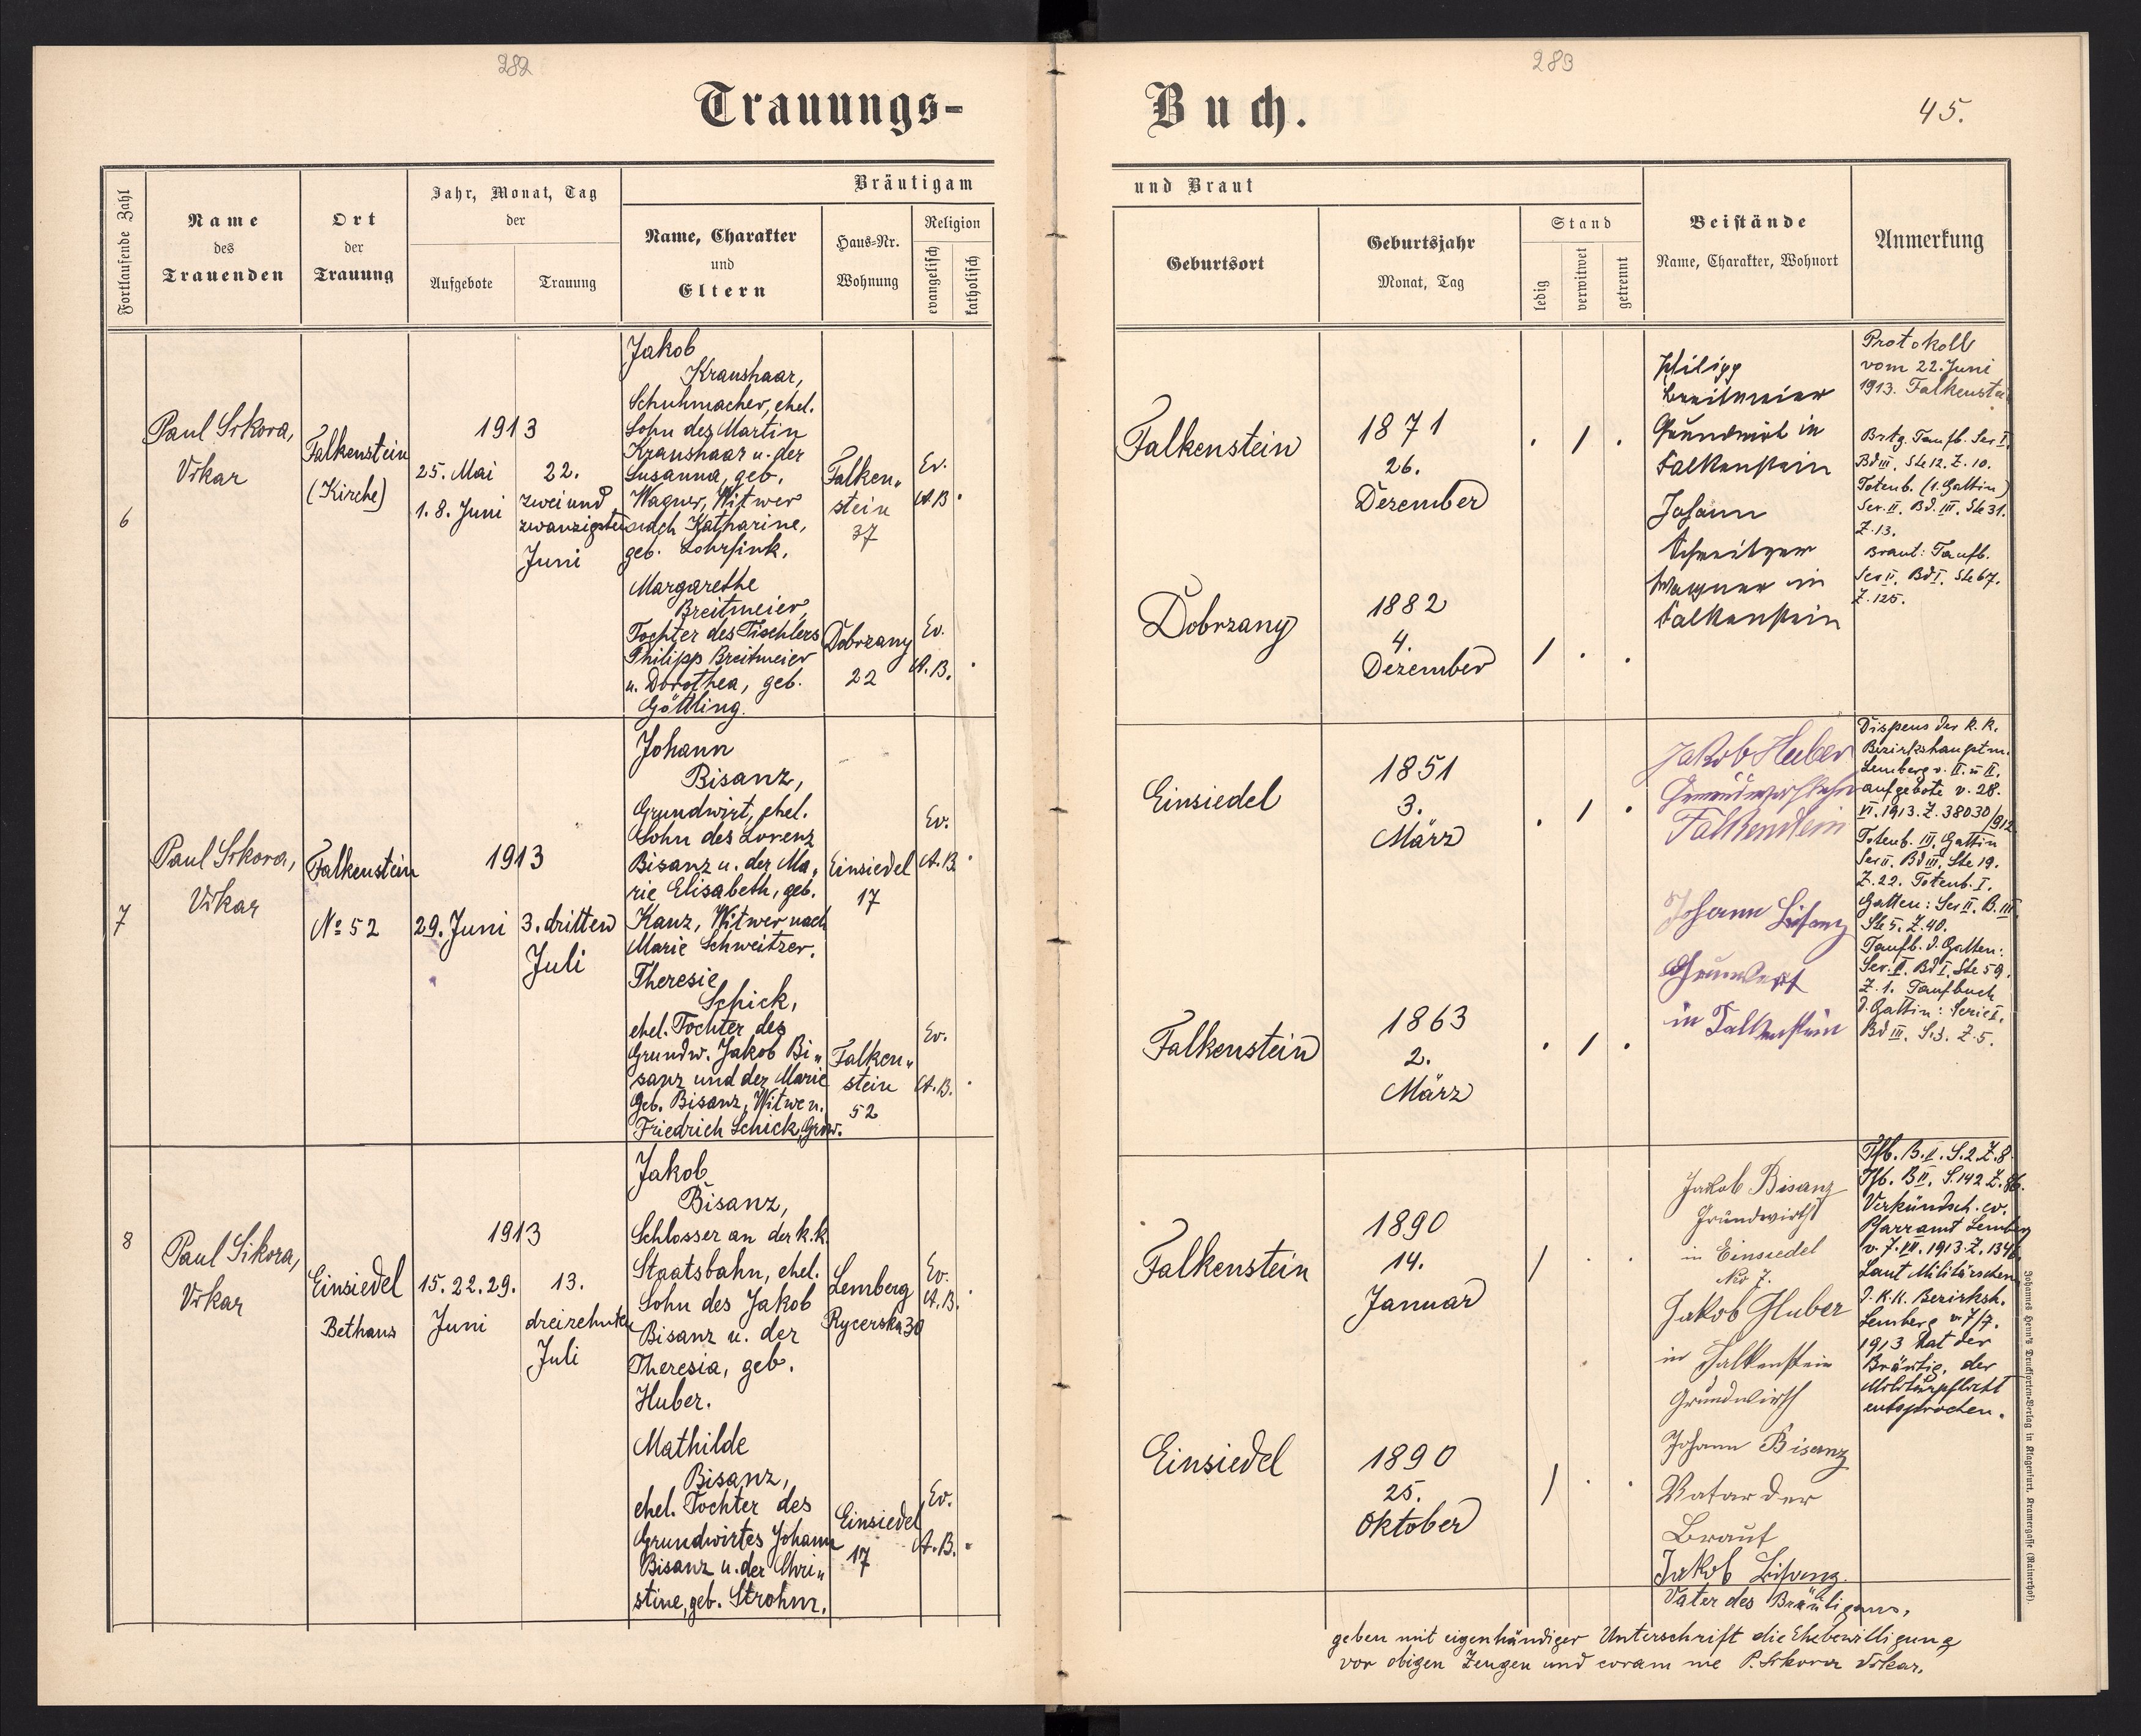 282
Trauungs-
Fortlaufende Zahl
Name
des
Trauenden
Ort
der
Trauung
Jahr, Monat, Tag
der
Aufgebote
Trauung
Bräutigam
Name, Charakter
und
Eltern
Haus-Nr.
Wohnung
Religion
evangelisch
katholisch
6
Paul Sikora,
Vikar
Falkenstein
(Kirche)
1913
25. Mai
1. 8. Juni
22.
zwei und
zwanzigsten
Juni
Jakob
Kraushaar,
Schuhmacher, ehel.
Sohn des Martin
Kraushaar u. der
Susanna, geb.
Wagner, Witwer
nach Katharine,
geb. Lohrfink.
Falken„
stein
37
Ev.
A.B.
Margarethe
Breitmeier,
Tochter des Tischlers
Philipp Breitmeier
u. Dorothea, geb.
Göttling.
Dobrzany
22
Ev.
A.B.
7
Paul Sikora,
Vikar
Falkenstein
No 52
1913
29. Juni
3. dritten
Juli
Johann
Bisanz,
Grundwirt, ehel.
Sohn des Lorenz
Bisanz u. der Ma„
rie Elisabeth, geb.
Kanz, Witwer nach
Marie Schweitzer.
Einsiedel
17
Ev.
A.B.
Theresie
Schick,
ehel. Tochter des
Grundw. Jakob Bi„
sanz und der Marie
geb. Bisanz, Witwe n.
Friedrich Schick, Grw.
Falken„
stein
52
Ev.
A.B.
8
Paul Sikora,
Vikar
Einsiedel
Bethaus
1913
15. 22. 29.
Juni
13.
dreizehnten
Juli
Jakob
Bisanz,
Schlosser an der k.k.
Staatsbahn, ehel.
Sohn des Jakob
Bisanz u. der
Theresia, geb.
Huber.
Lemberg
Rycerska 30
Ev.
A.B.
Mathilde
Bisanz,
ehel. Tochter des
Grundwirtes Johann
Bisanz u. der Chri„
stine, geb. Strohm.
Einsiedel
17
Ev.
A.B.
283
Buch.
45.
und Braut
Geburtsort
Geburtsjahr
Monat, Tag
Stand
ledig
verwitwet
getrennt
Beistände
Name, Charakter, Wohnort
Anmerkung
Falkenstein
1871
26.
Dezember
. 1 .
Dobrzany
1882
4.
Dezember
1 . .
Philipp
Breitmeier
Grundwirt in
Falkenstein
Johann
Schweitzer
Wagner in
Falkenstein
Protokoll
vom 22. Juni
1913. Falkenstein
Brtg. Taufb. Ser I.
Bd III. Ste 12. Z. 10.
Totenb. (1. Gattin)
Ser. II. Bd. III. Ste 31.
Z. 13.
Braut: Taufb.
Ser II. Bd I. Ste 67.
Z. 125.
Einsiedel
1851
3.
März
. 1 .
Falkenstein
1863
2.
März
. 1 .
Jakob Huber
Falkenstein
Johann Bisanz
Grundwirt
in Falkenstein
Dispens der k. k.
Bezirkshauptm.
Lemberg v. II. u II.
aufgebote v. 28.
VI. 1913. Z. 38030/912
Totenb. III. Gattin
Ser II. Bd III. Ste 19.
Z. 22. Totenb. I.
Gatten: Ser II. B. III.
Ste 5. Z. 40.
Taufb. d. Gatten:
Ser. I. Bd I. Ste 59.
Z. 1. Taufbuch
d. Gattin: Serie I.
Bd III. S. 3. Z. 5.
Falkenstein
1890
14.
Januar
1 . .
Einsiedel
1890
25.
Oktober
1 . .
Jakob Bisanz
Grundwirth
in Einsiedel
Nro 7.
Jakob Huber
in Falkenstein
Grundwirth
Johann Bisanz
Vatar der
Braut
Jakob Bisanz.
Vater des Bräutigams,
geben mit eigenhändiger Unterschrift die Ehebewilligung
vor obigen Zeugen und coram me P. Sikora Vikar.
Tfb. B. II. S. 2. Z. 8
Tfb. B II. S. 142 Z. 86.
Verkündsch. ev.
Pfarramt Lemberg
v. 7. VII. 1913. Z. 1346.
Laut Militärschein
d. K.K. Bezirksh.
Lemberg v. 7/7.
1913 hat der
Bräutig. der
Militärpflicht
entsprochen.
Johannes Heyn's Drucksorten-Verlag in Klagenfurt, Kramergasse (Rainerhof).